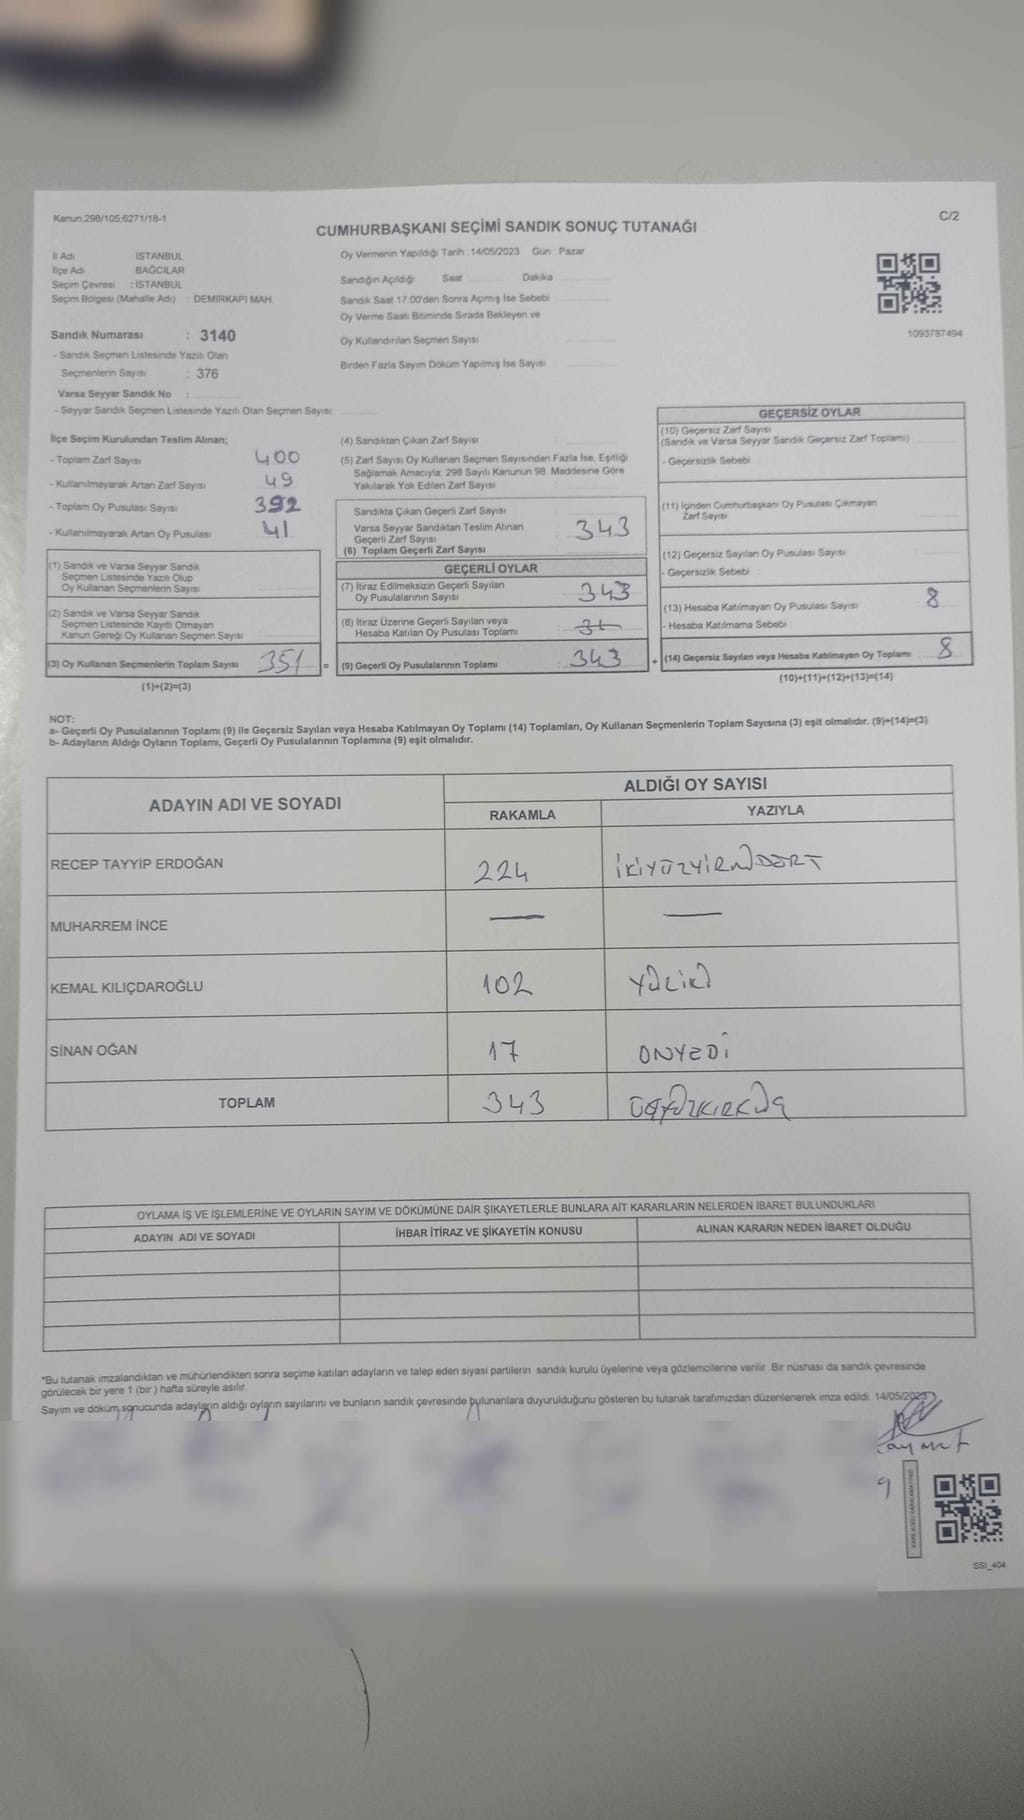 Kanun;298/105,6271/18-1
C/2
CUMHURBAŞKANI SEÇİMİ SANDIK SONUÇ TUTANAĞI
İl Adı İSTANBUL
İlçe Adı BAĞCILAR
Seçim Çevresi : İSTANBUL
Seçim Bölgesi (Mahalle Adı) : DEMİRKAPI MAH.
Sandık Numarası : 3140
- Sandık Seçmen Listesinde Yazılı Olan
Seçmenlerin Sayısı : 376
Varsa Seyyar Sandık No :
- Seyyar Sandık Seçmen Listesinde Yazılı Olan Seçmen Sayısı
Oy Vermenin Yapıldığı Tarih : 14/05/2023 Gün : Pazar
Sandığın Açıldığı Saat Dakika
Sandık Saat 17.00'den Sonra Açımış İse Sebebi
Oy Verme Saati Bitiminde Sırada Bekleyen ve
Oy Kullandırılan Seçmen Sayısı
Birden Fazla Sayım Döküm Yapılmış İse Sayısı
1093787494
İlçe Seçim Kurulundan Teslim Alınan;
- Toplam Zarf Sayısı 400
- Kullanılmayarak Artan Zarf Sayısı 49
- Toplam Oy Pusulası Sayısı 392
- Kullanılmayarak Artan Oy Pusulası 41
(1) Sandık ve Varsa Seyyar Sandık
Seçmen Listesinde Yazılı Olup
Oy Kullanan Seçmenlerin Sayısı
(2) Sandık ve Varsa Seyyar Sandık
Seçmen Listesinde Kayıtlı Olmayan
Kanun Gereği Oy Kullanan Seçmen Sayısı
(3) Oy Kullanan Seçmenlerin Toplam Sayısı 351 =
(1)+(2)=(3)
(4) Sandıktan Çıkan Zarf Sayısı
(5) Zarf Sayısı Oy Kullanan Seçmen Sayısından Fazla İse, Eşitliği
Sağlamak Amacıyla, 298 Sayılı Kanunun 98. Maddesine Göre
Yakılarak Yok Edilen Zarf Sayısı
Sandıkta Çıkan Geçerli Zarf Sayısı
Varsa Seyyar Sandıktan Teslim Alınan
Geçerli Zarf Sayısı
(6) Toplam Geçerli Zarf Sayısı 343
GEÇERLİ OYLAR
(7) İtiraz Edilmeksizin Geçerli Sayılan
Oy Pusulalarının Sayısı 343
(8) İtiraz Üzerine Geçerli Sayılan veya
Hesaba Katılan Oy Pusulası Toplamı
(9) Geçerli Oy Pusulalarının Toplamı 343 +
GEÇERSİZ OYLAR
(10) Geçersiz Zarf Sayısı
(Sandık ve Varsa Seyyar Sandık Geçersiz Zarf Toplamı)
- Geçersizlik Sebebi
(11) İçinden Cumhurbaşkanı Oy Pusulası Çıkmayan
Zarf Sayısı
(12) Geçersiz Sayılan Oy Pusulası Sayısı
- Geçersizlik Sebebi
(13) Hesaba Katılmayan Oy Pusulası Sayısı 8
- Hesaba Katılmama Sebebi
(14) Geçersiz Sayılan veya Hesaba Katılmayan Oy Toplamı 8
(10)+(11)+(12)+(13)=(14)
NOT:
a- Geçerli Oy Pusulalarının Toplamı (9) ile Geçersiz Sayılan veya Hesaba Katılmayan Oy Toplamı (14) Toplamları, Oy Kullanan Seçmenlerin Toplam Sayısına (3) eşit olmalıdır. (9)+(14)=(3)
b- Adayların Aldığı Oyların Toplamı, Geçerli Oy Pusulalarının Toplamına (9) eşit olmalıdır.
ADAYIN ADI VE SOYADI ALDIĞI OY SAYISI
RAKAMLA YAZIYLA
RECEP TAYYİP ERDOĞAN 224 İKİYÜZYİRMİDÖRT
MUHARREM İNCE — —
KEMAL KILIÇDAROĞLU 102 YÜZİKİ
SİNAN OĞAN 17 ONYEDİ
TOPLAM 343 ÜÇYÜZKIRKÜÇ
OYLAMA İŞ VE İŞLEMLERİNE VE OYLARIN SAYIM VE DÖKÜMÜNE DAİR ŞİKAYETLERLE BUNLARA AİT KARARLARIN NELERDEN İBARET BULUNDUKLARI
ADAYIN ADI VE SOYADI İHBAR İTİRAZ VE ŞİKAYETİN KONUSU ALINAN KARARIN NEDEN İBARET OLDUĞU
*Bu tutanak imzalandıktan ve mühürlendikten sonra seçime katılan adayların ve talep eden siyasi partilerin sandık kurulu üyelerine veya gözlemcilerine verilir. Bir nüshası da sandık çevresinde
görülecek bir yere 1 (bir ) hafta süreyle asılır.
Sayım ve döküm sonucunda adayların aldığı oyların sayılarını ve bunların sandık çevresinde bulunanlara duyurulduğunu gösteren bu tutanak tarafımızdan düzenlenerek imza edildi. 14/05/2023
SSI_404